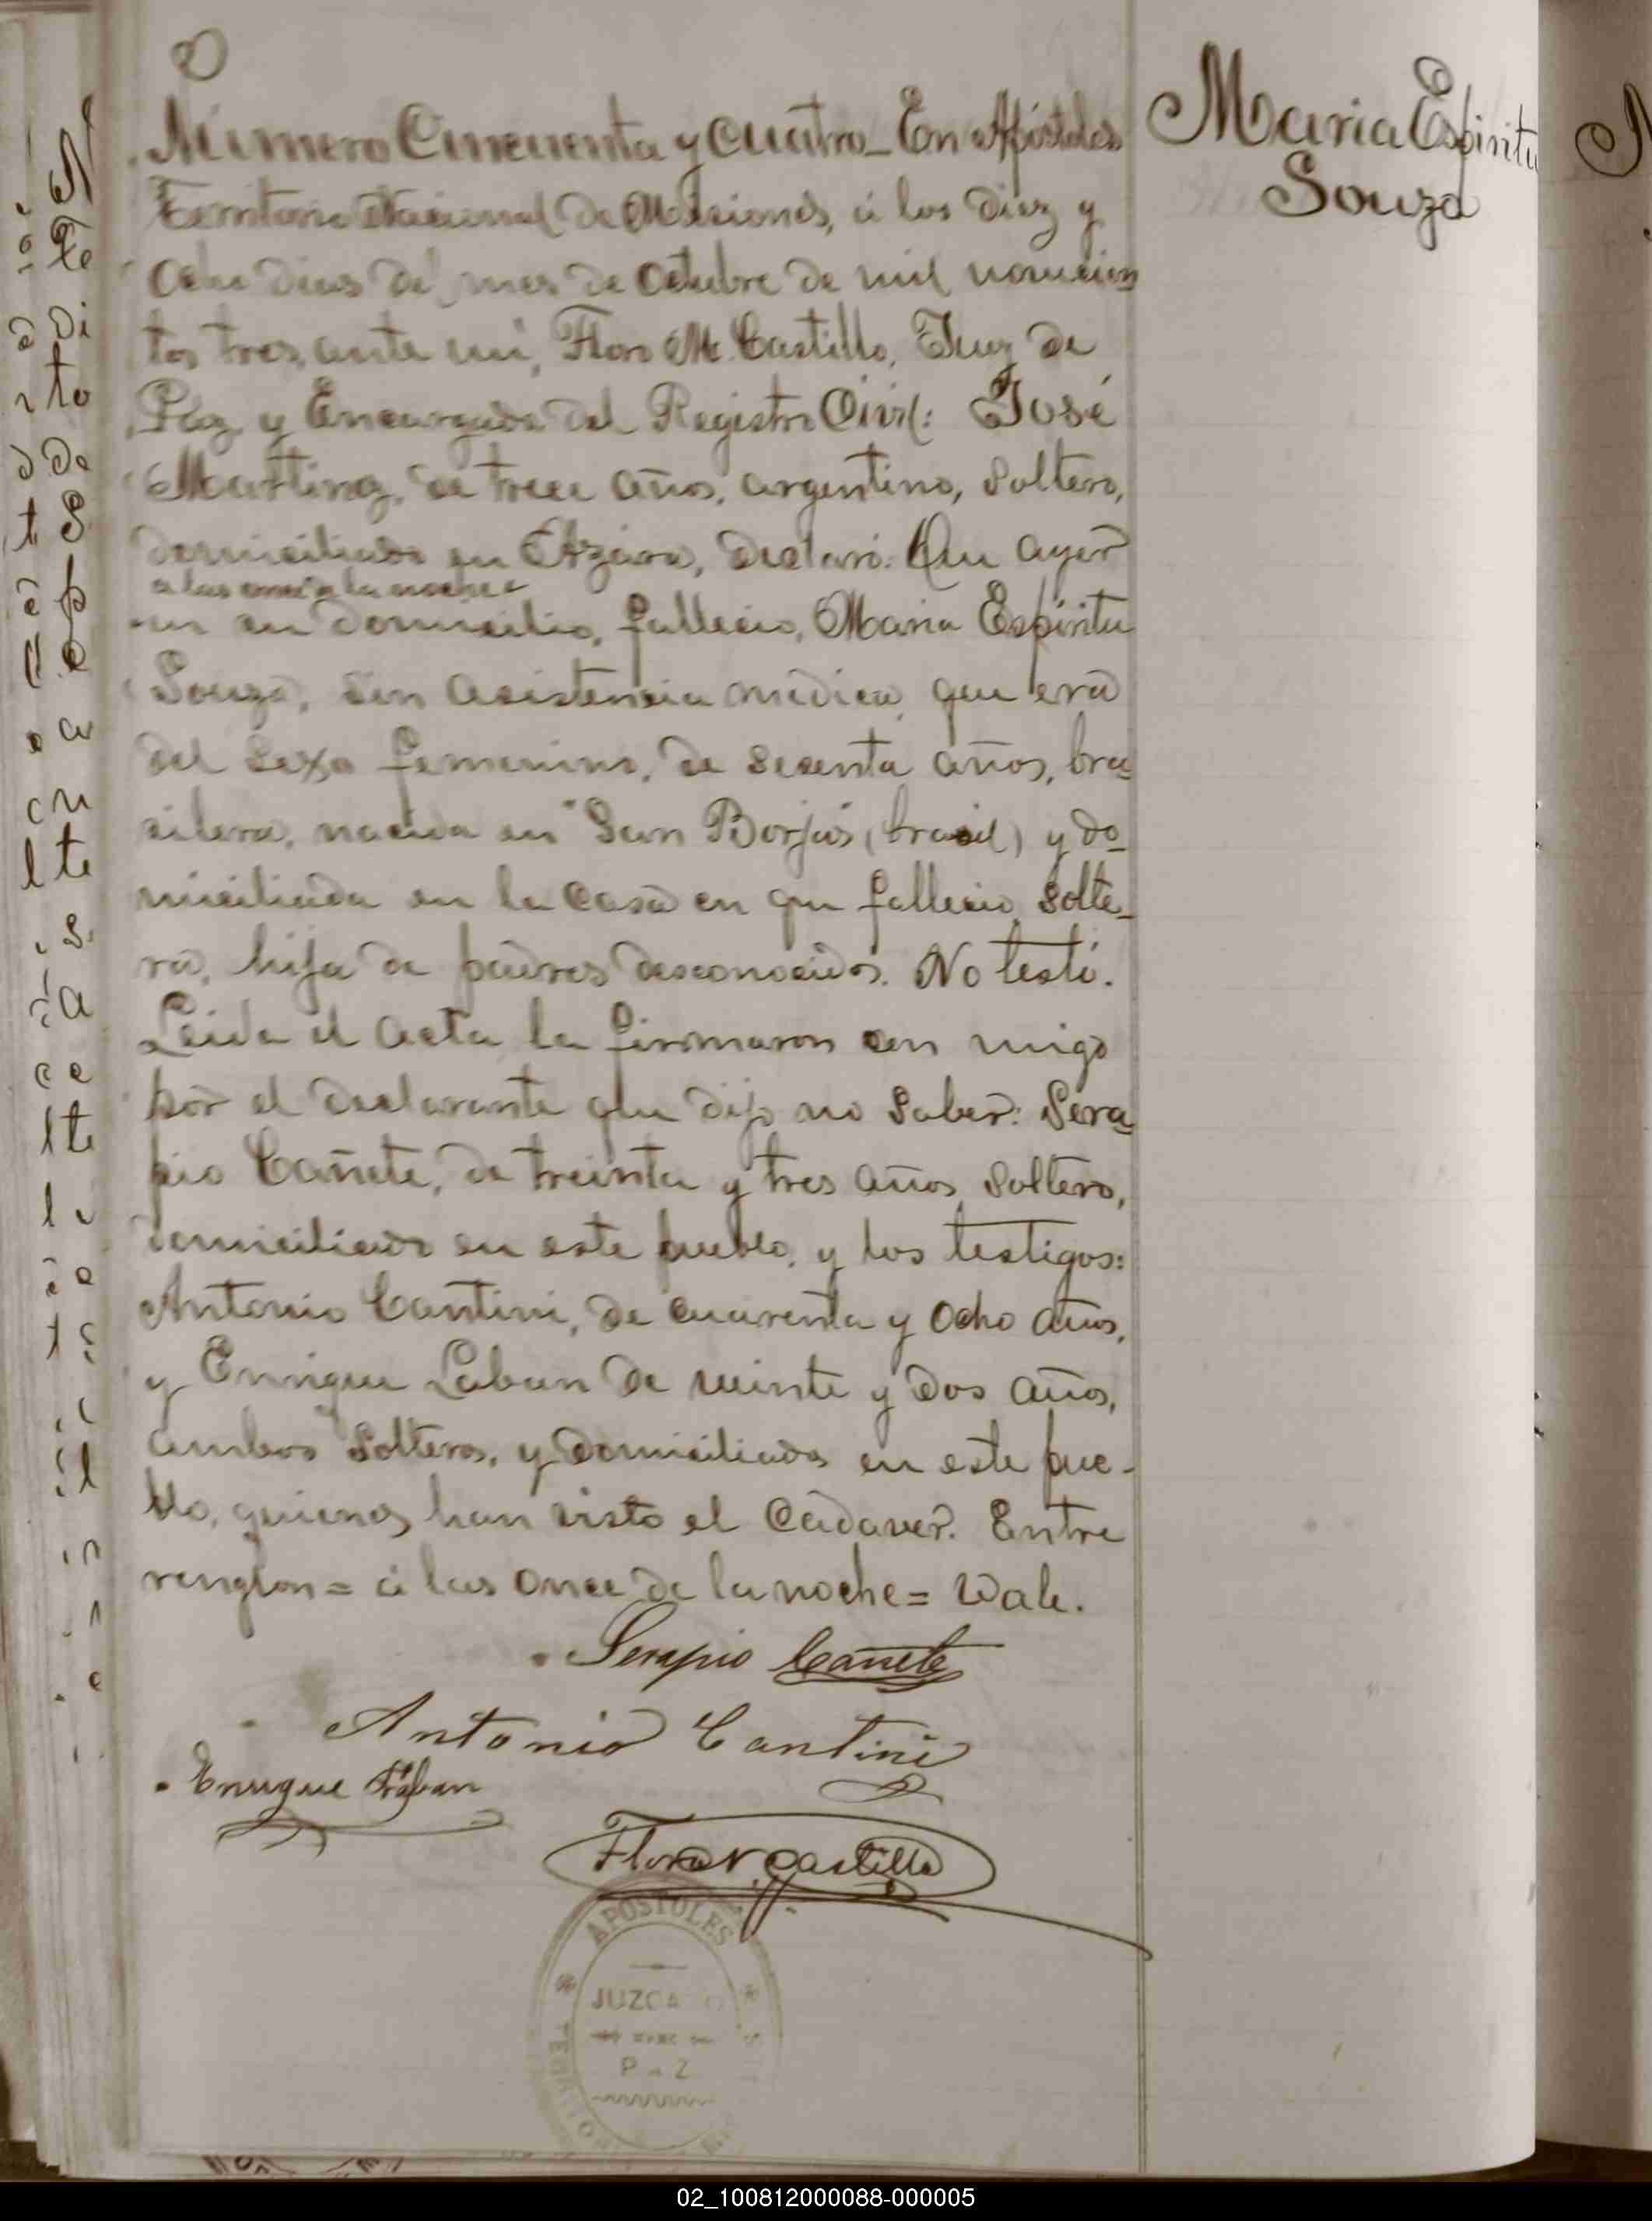 Maria Espiritu
Souza
Número Cincuenta y cuatro_ En Apóstoles
Territorio Nacional de Misiones, á los diez y
ocho dias del mes de Octubre de mil novecien
tos tres, ante mi, Floro M. Castillo, Juez de
Paz y Encargado del Registro Civil: José
Martinez, de trece años, argentino, soltero,
domiciliado en Azara, declaró: Que ayer
a las once de la noche
en su domicilio, fallecio, Maria Espíritu
Souza, sin asistencia médica, que era
del sexo femenino, de sesenta años, bra
silera, nacida en San Borjas (brasil) y do
miciliada en la casa en que fallecio, solte_
ra, hija de padres desconocidos. No testó.
Leida el acta la firmaron con migo
por el declarante que dijo no saber: Sera
pio Cañete, de treinta y tres años, soltero,
domiciliado en este pueblo, y los testigos:
Antonio Cantini, de cuarenta y ocho años,
y Enrique Laban de veinte y dos años,
ambos solteros, y domiciliados en este pue-
blo, quienes han visto el cadaver. Entre
renglon = á las once de la noche = Vale.
Serapio Cañete
Antonio Cantini
Enrique Laban
Floro M Castillo
APOSTOLES
JUZGADO
DE
PAZ
02_100812000088-000005